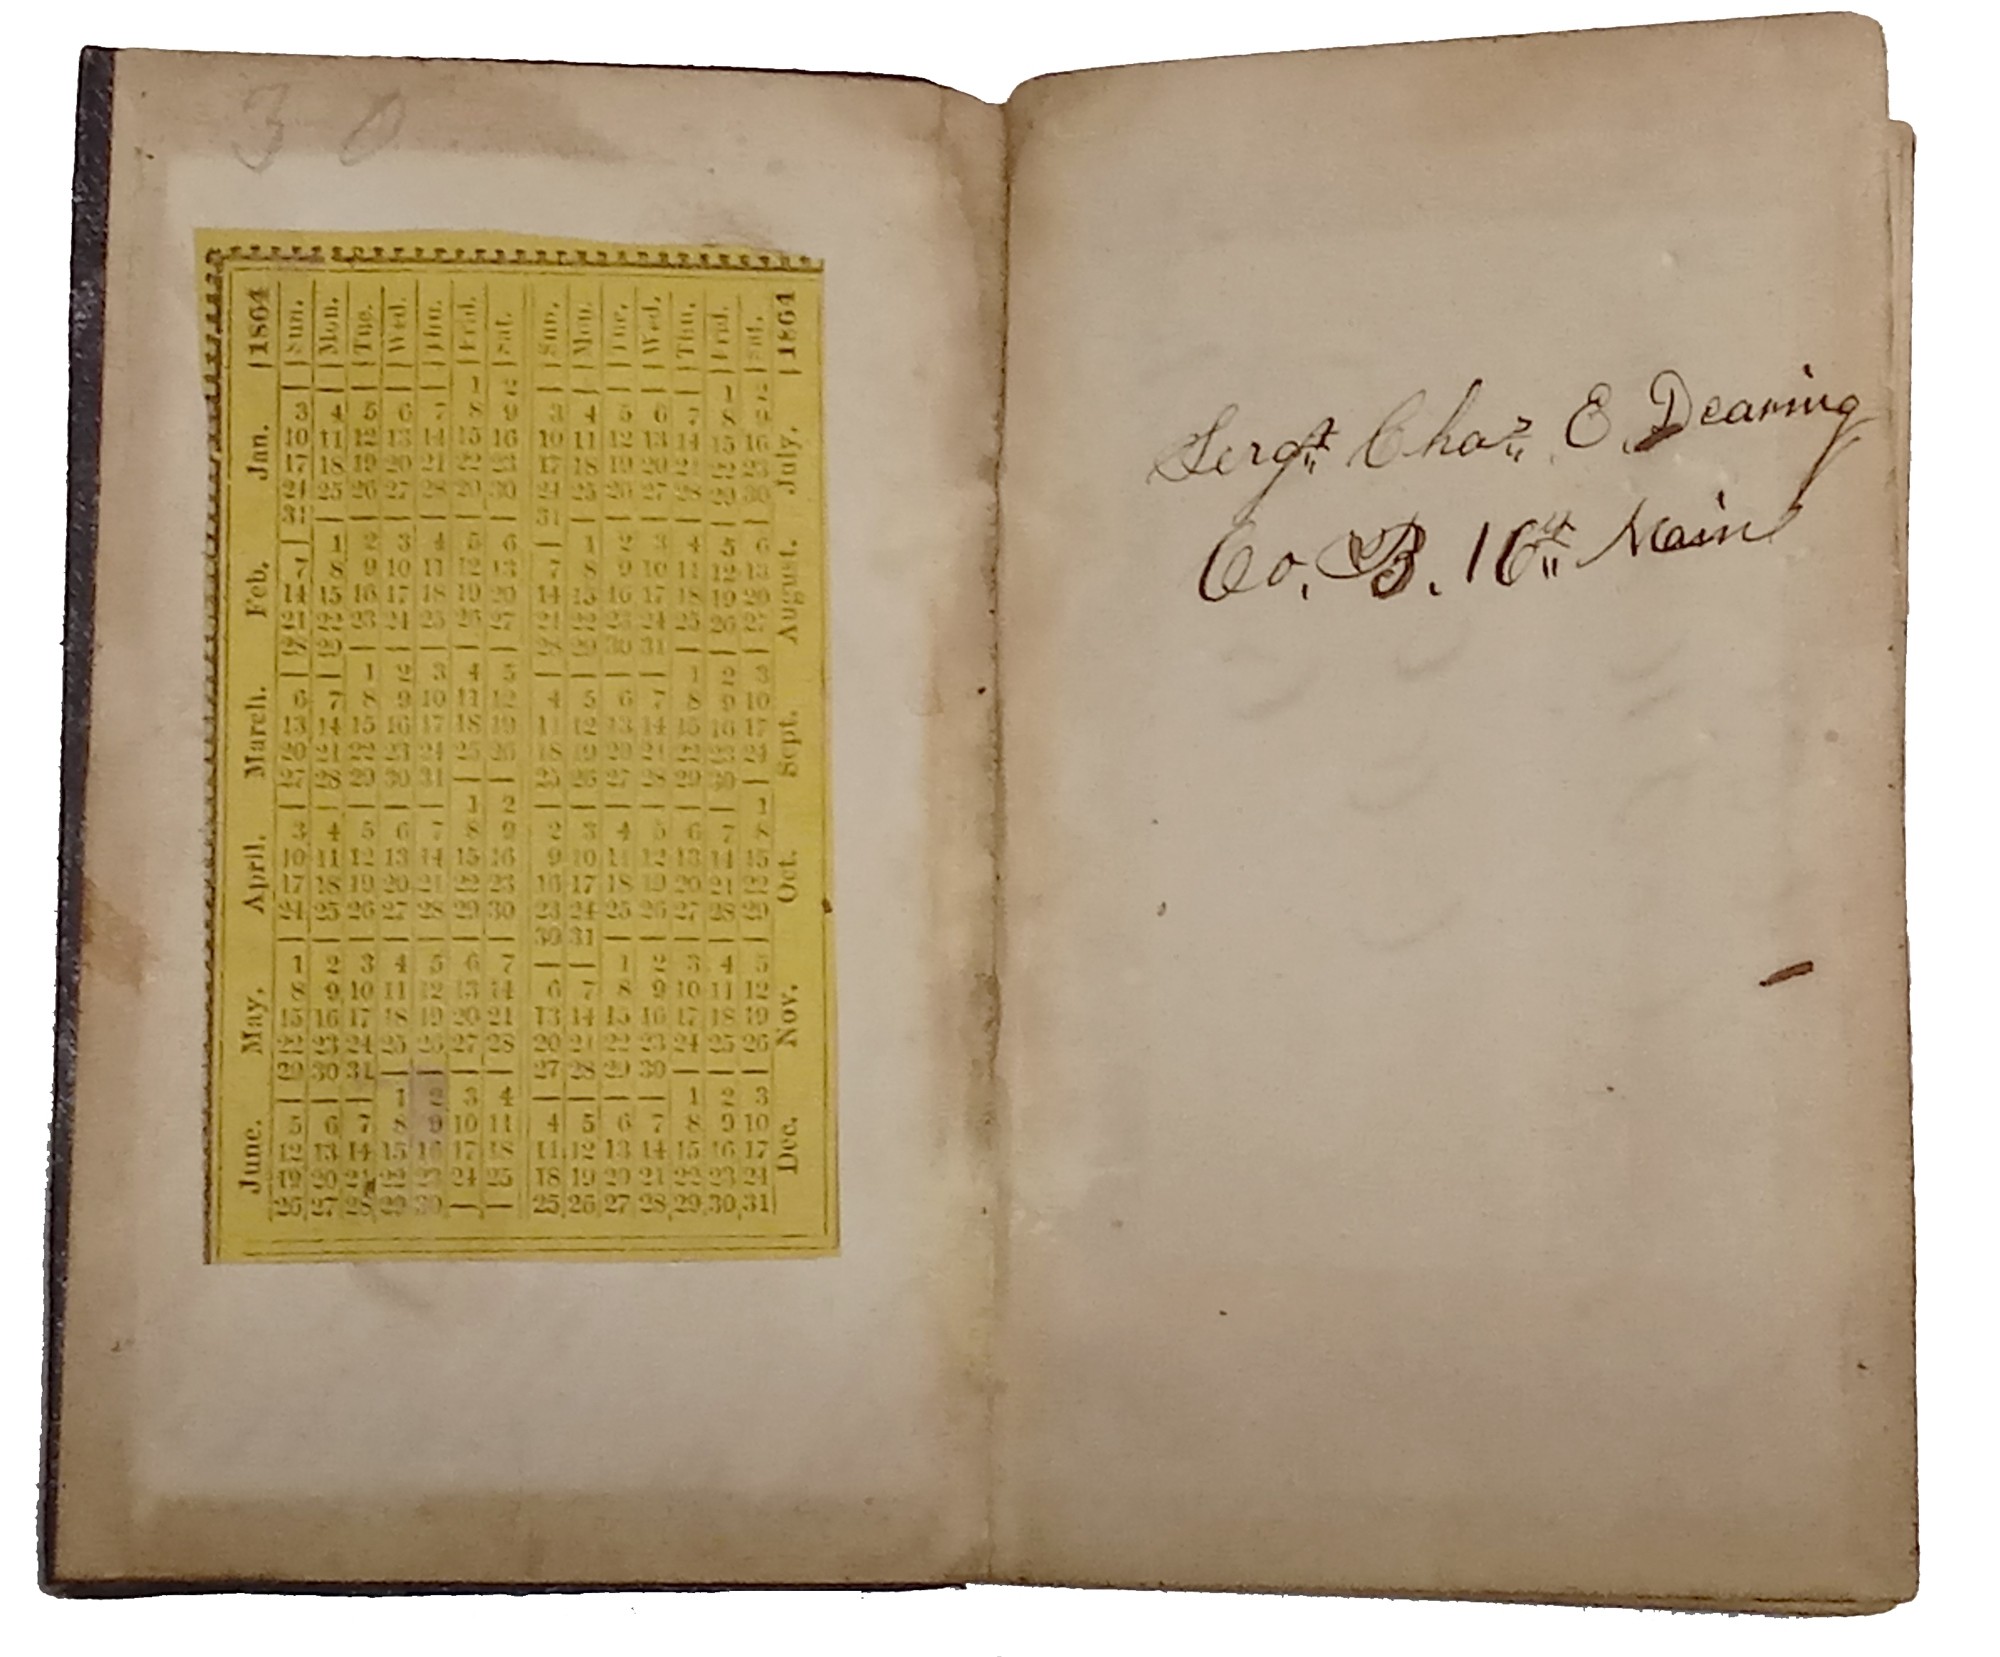 3 0
1864 Sun. Mon. Tue. Wed. Thu. Frid. Sat. Sun. Mon. Tue. Wed. Thu. Frid. Sat. 1864
Jan. — — — — — 1 2 — — — — — 1 2 July.
3 4 5 6 7 8 9 3 4 5 6 7 8 9
10 11 12 13 14 15 16 10 11 12 13 14 15 16
17 18 19 20 21 22 23 17 18 19 20 21 22 23
24 25 26 27 28 29 30 24 25 26 27 28 29 30
31 — — — — — — 31 — — — — — —
Feb. — 1 2 3 4 5 6 — 1 2 3 4 5 6 August.
7 8 9 10 11 12 13 7 8 9 10 11 12 13
14 15 16 17 18 19 20 14 15 16 17 18 19 20
21 22 23 24 25 26 27 21 22 23 24 25 26 27
28 29 — — — — — 28 29 30 31 — — —
March. — — 1 2 3 4 5 — — — — 1 2 3 Sept.
6 7 8 9 10 11 12 4 5 6 7 8 9 10
13 14 15 16 17 18 19 11 12 13 14 15 16 17
20 21 22 23 24 25 26 18 19 20 21 22 23 24
27 28 29 30 31 — — 25 26 27 28 29 30 —
April. — — — — — 1 2 — — — — — — 1 Oct.
3 4 5 6 7 8 9 2 3 4 5 6 7 8
10 11 12 13 14 15 16 9 10 11 12 13 14 15
17 18 19 20 21 22 23 16 17 18 19 20 21 22
24 25 26 27 28 29 30 23 24 25 26 27 28 29
— — — — — — — 30 31 — — — — —
May. 1 2 3 4 5 6 7 — — 1 2 3 4 5 Nov.
8 9 10 11 12 13 14 6 7 8 9 10 11 12
15 16 17 18 19 20 21 13 14 15 16 17 18 19
22 23 24 25 26 27 28 20 21 22 23 24 25 26
29 30 31 — — — — 27 28 29 30 — — —
June. — — — 1 2 3 4 — — — — 1 2 3 Dec.
5 6 7 8 9 10 11 4 5 6 7 8 9 10
12 13 14 15 16 17 18 11 12 13 14 15 16 17
19 20 21 22 23 24 25 18 19 20 21 22 23 24
26 27 28 29 30 — — 25 26 27 28 29 30 31
Sergt Chas E Dearing
Co. B. 16th Maine